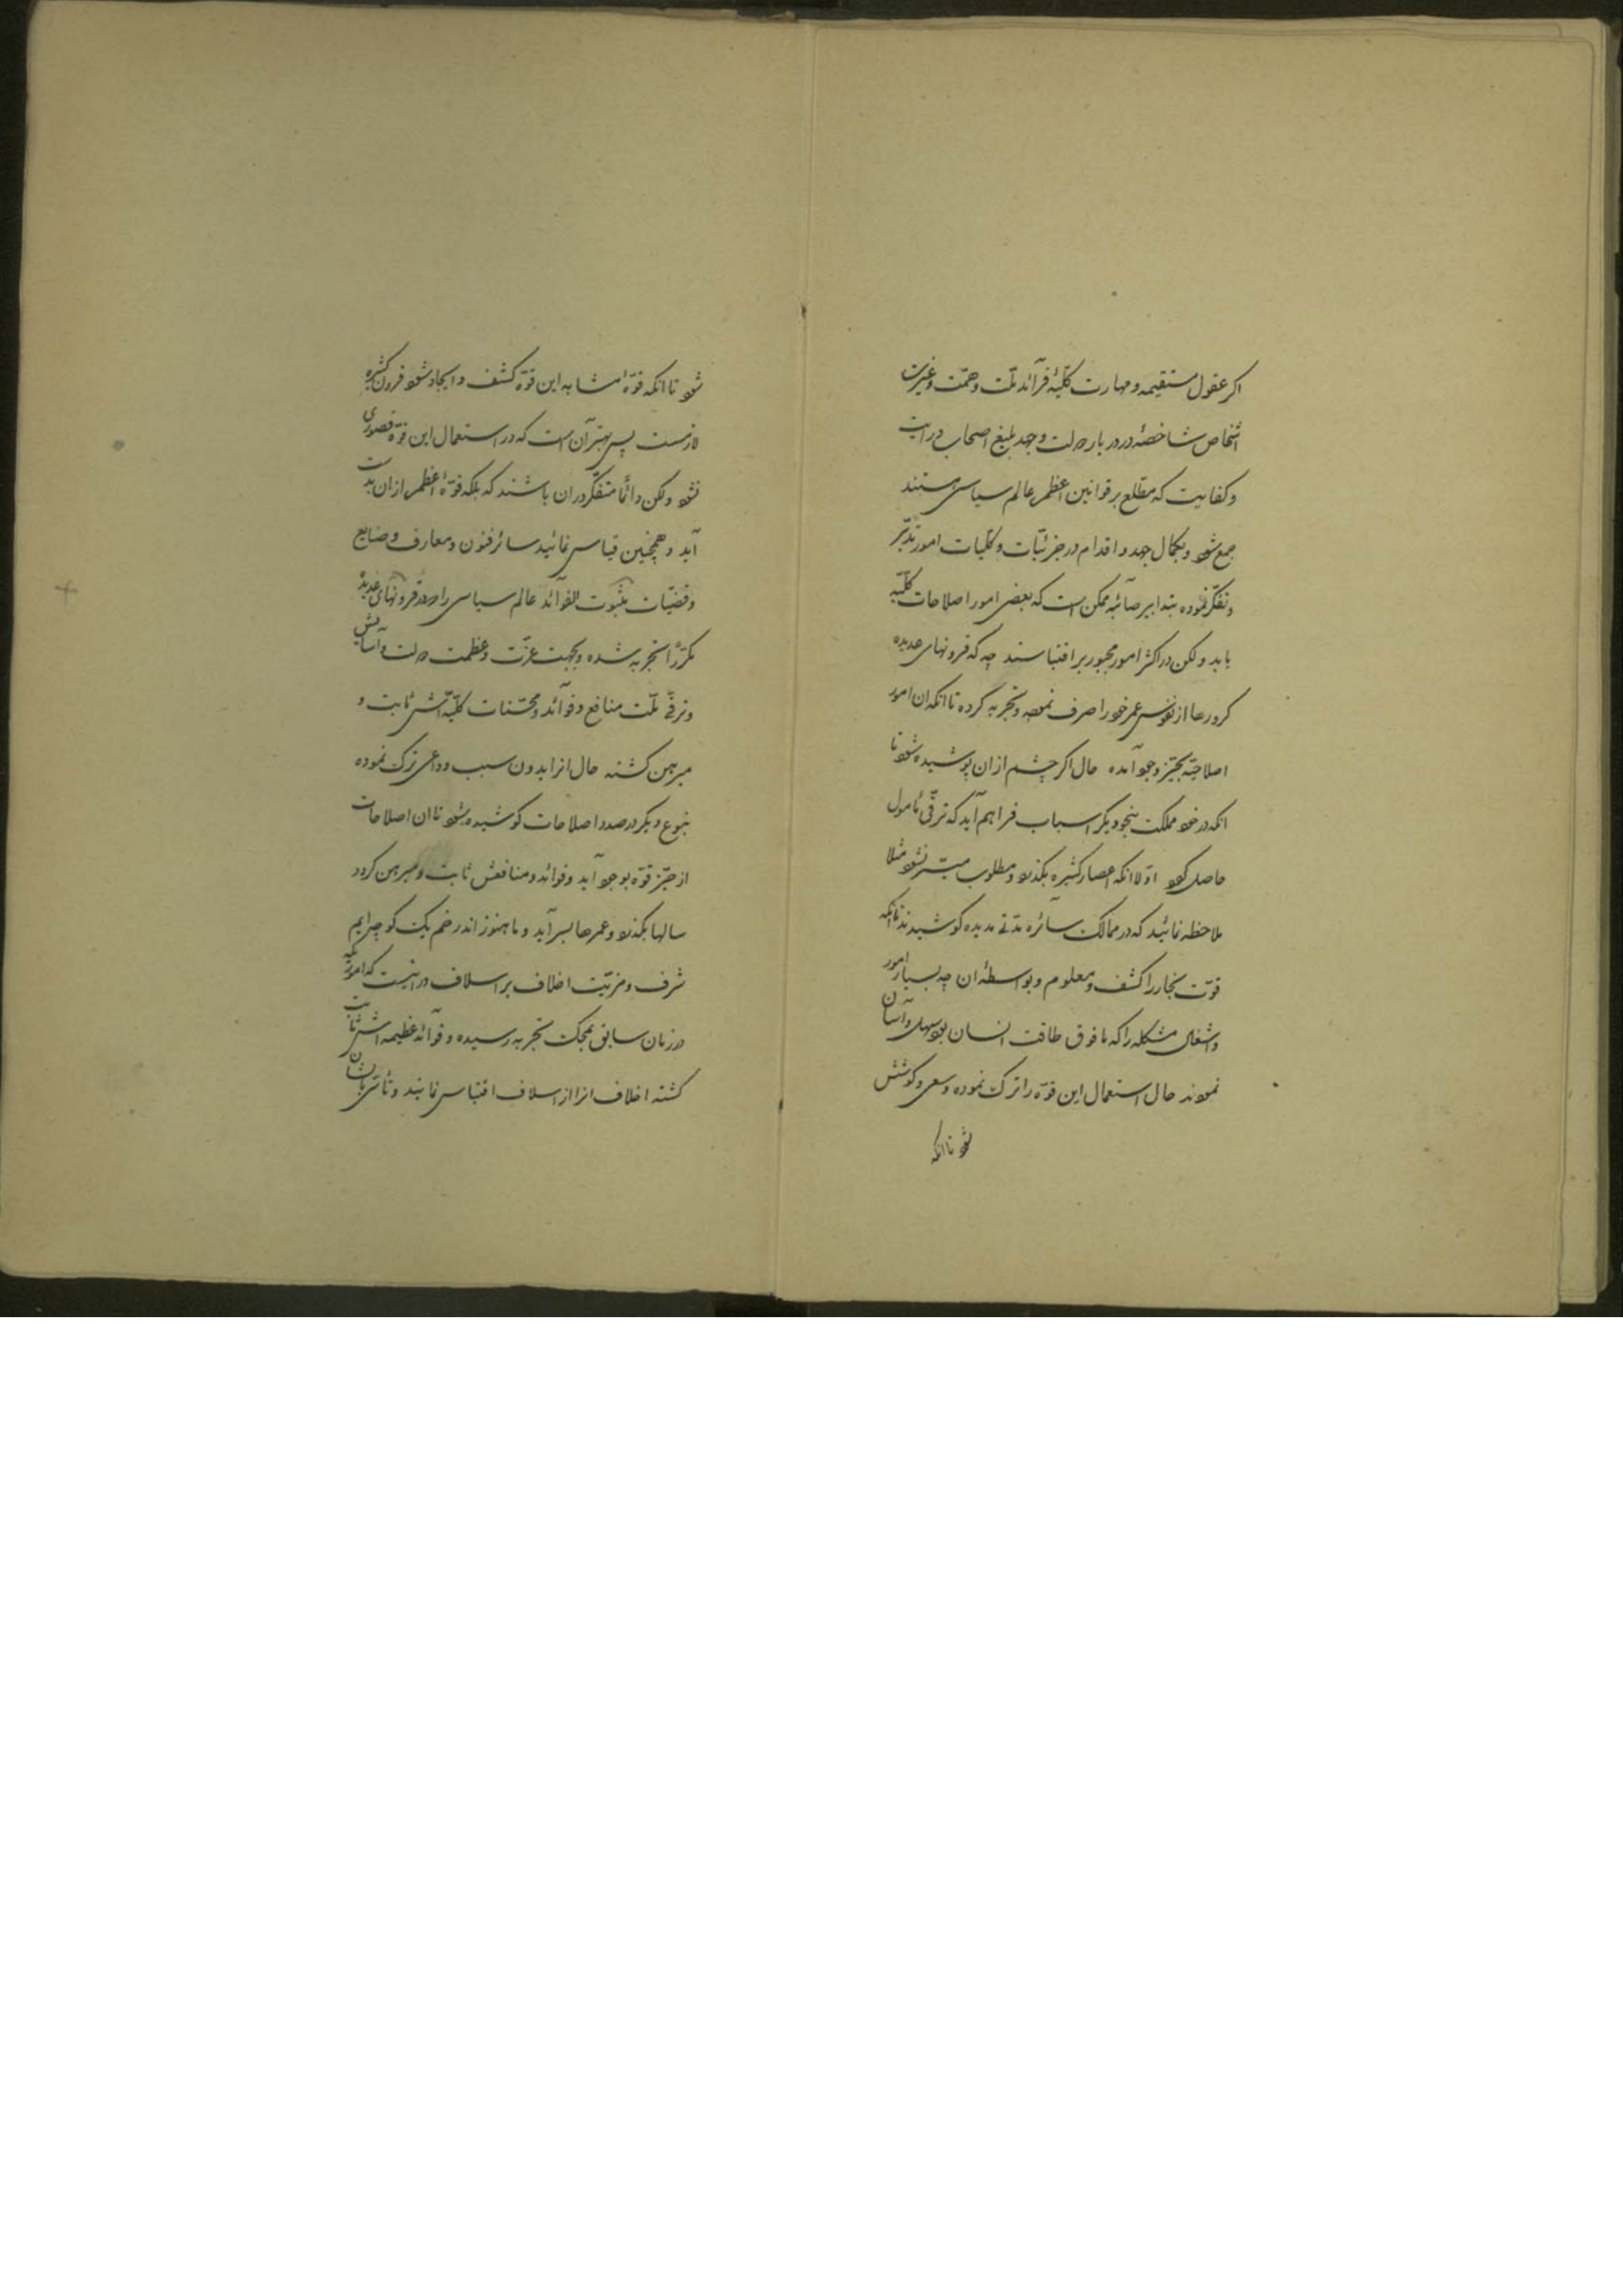 اکر عقول مستقیمه و مهارت کلّیهٔ فرآئد ملّت و همّت و غیرت
اشخاص شاخصهٔ در دربار دولت و جهد بلیغ اصحاب درایت
و کفایت که مطّلع بر قوانین اعظم عالم سیاسی هستند
جمع شود و بکمال جهد و اقدام در جزئیّات و کلّیات امور تدبّر
و تفکّر نموده بتدابیر صائبه ممکن است که بعضی امور اصلاحات کلّیّه
یابد ولکن در اکثر امور مجبور بر اقتباسند چه که قرونهای عدیده
کرورها از نفوس عمر خود را صرف نموده و تجربه کرده تا انکه ان امور
اصلاحیّه بحیّز وجود آمده حال اکر چشم از ان پوشیده شود تا
انکه در خود مملکت بنحو دیکر اسباب فراهم آید که ترقّی مأمول
حاصل کردد اوّلا انکه اعصار کثیره بکذرد و مطلوب میسّر نشود مثلا
ملاحظه نمائید که در ممالک سآئره مدّتی مدیده کوشیدند تا انکه
قوّت بخار را کشف و معلوم و بواسطهٔ ان چه بسیار امور
و اشغال مشکله را که ما فوق طاقت انسان بود سهل و آسان
نمودند حال استعمال این قوّه را ترک نموده و سعی و کوشش
شود تا انکه
شود تا انکه قوّهٔ مشابه این قوّه کشف و ایجاد شود قرون کثیره
لازمست پس بهتر آن است که در استعمال این قوّه قصوری
نشود ولکن دائما متفکّر در ان باشند که بلکه قوّهٔ اعظم از ان بدست
آید و همچنین قیاس نمائید سائر فنون و معارف و صنایع
و قضیّات مثبوت الفوآئد عالم سیاسی را که در قرونهای عدیده
مکرّراً تجربه شده و بجهت عزّت و عظمت دولت و آسایش
و ترقّی ملّت منافع و فوآئد و محسّنات کلّیّه‌اش ثابت و
مبرهن کشته حال انرا بدون سبب و داعی ترک نموده
بنوع دیکر در صدد اصلاحات کوشیده شود تا ان اصلاحات
از حیّز قوّه بوجود آید و فوائد و منافعش ثابت و مبرهن کردد
سالها بکذرد و عمرها بسر آید و ما هنوز اندر خم یک کوچه‌ایم
شرف و مزیّت اخلاف بر اسلاف در اینست که اموریکه
در زمان سابق بمحک تجربه رسیده و فوآئد عظیمه‌اش ثابت
کشته اخلاف انرا از اسلاف اقتباس نمایند و تأسّی بانان